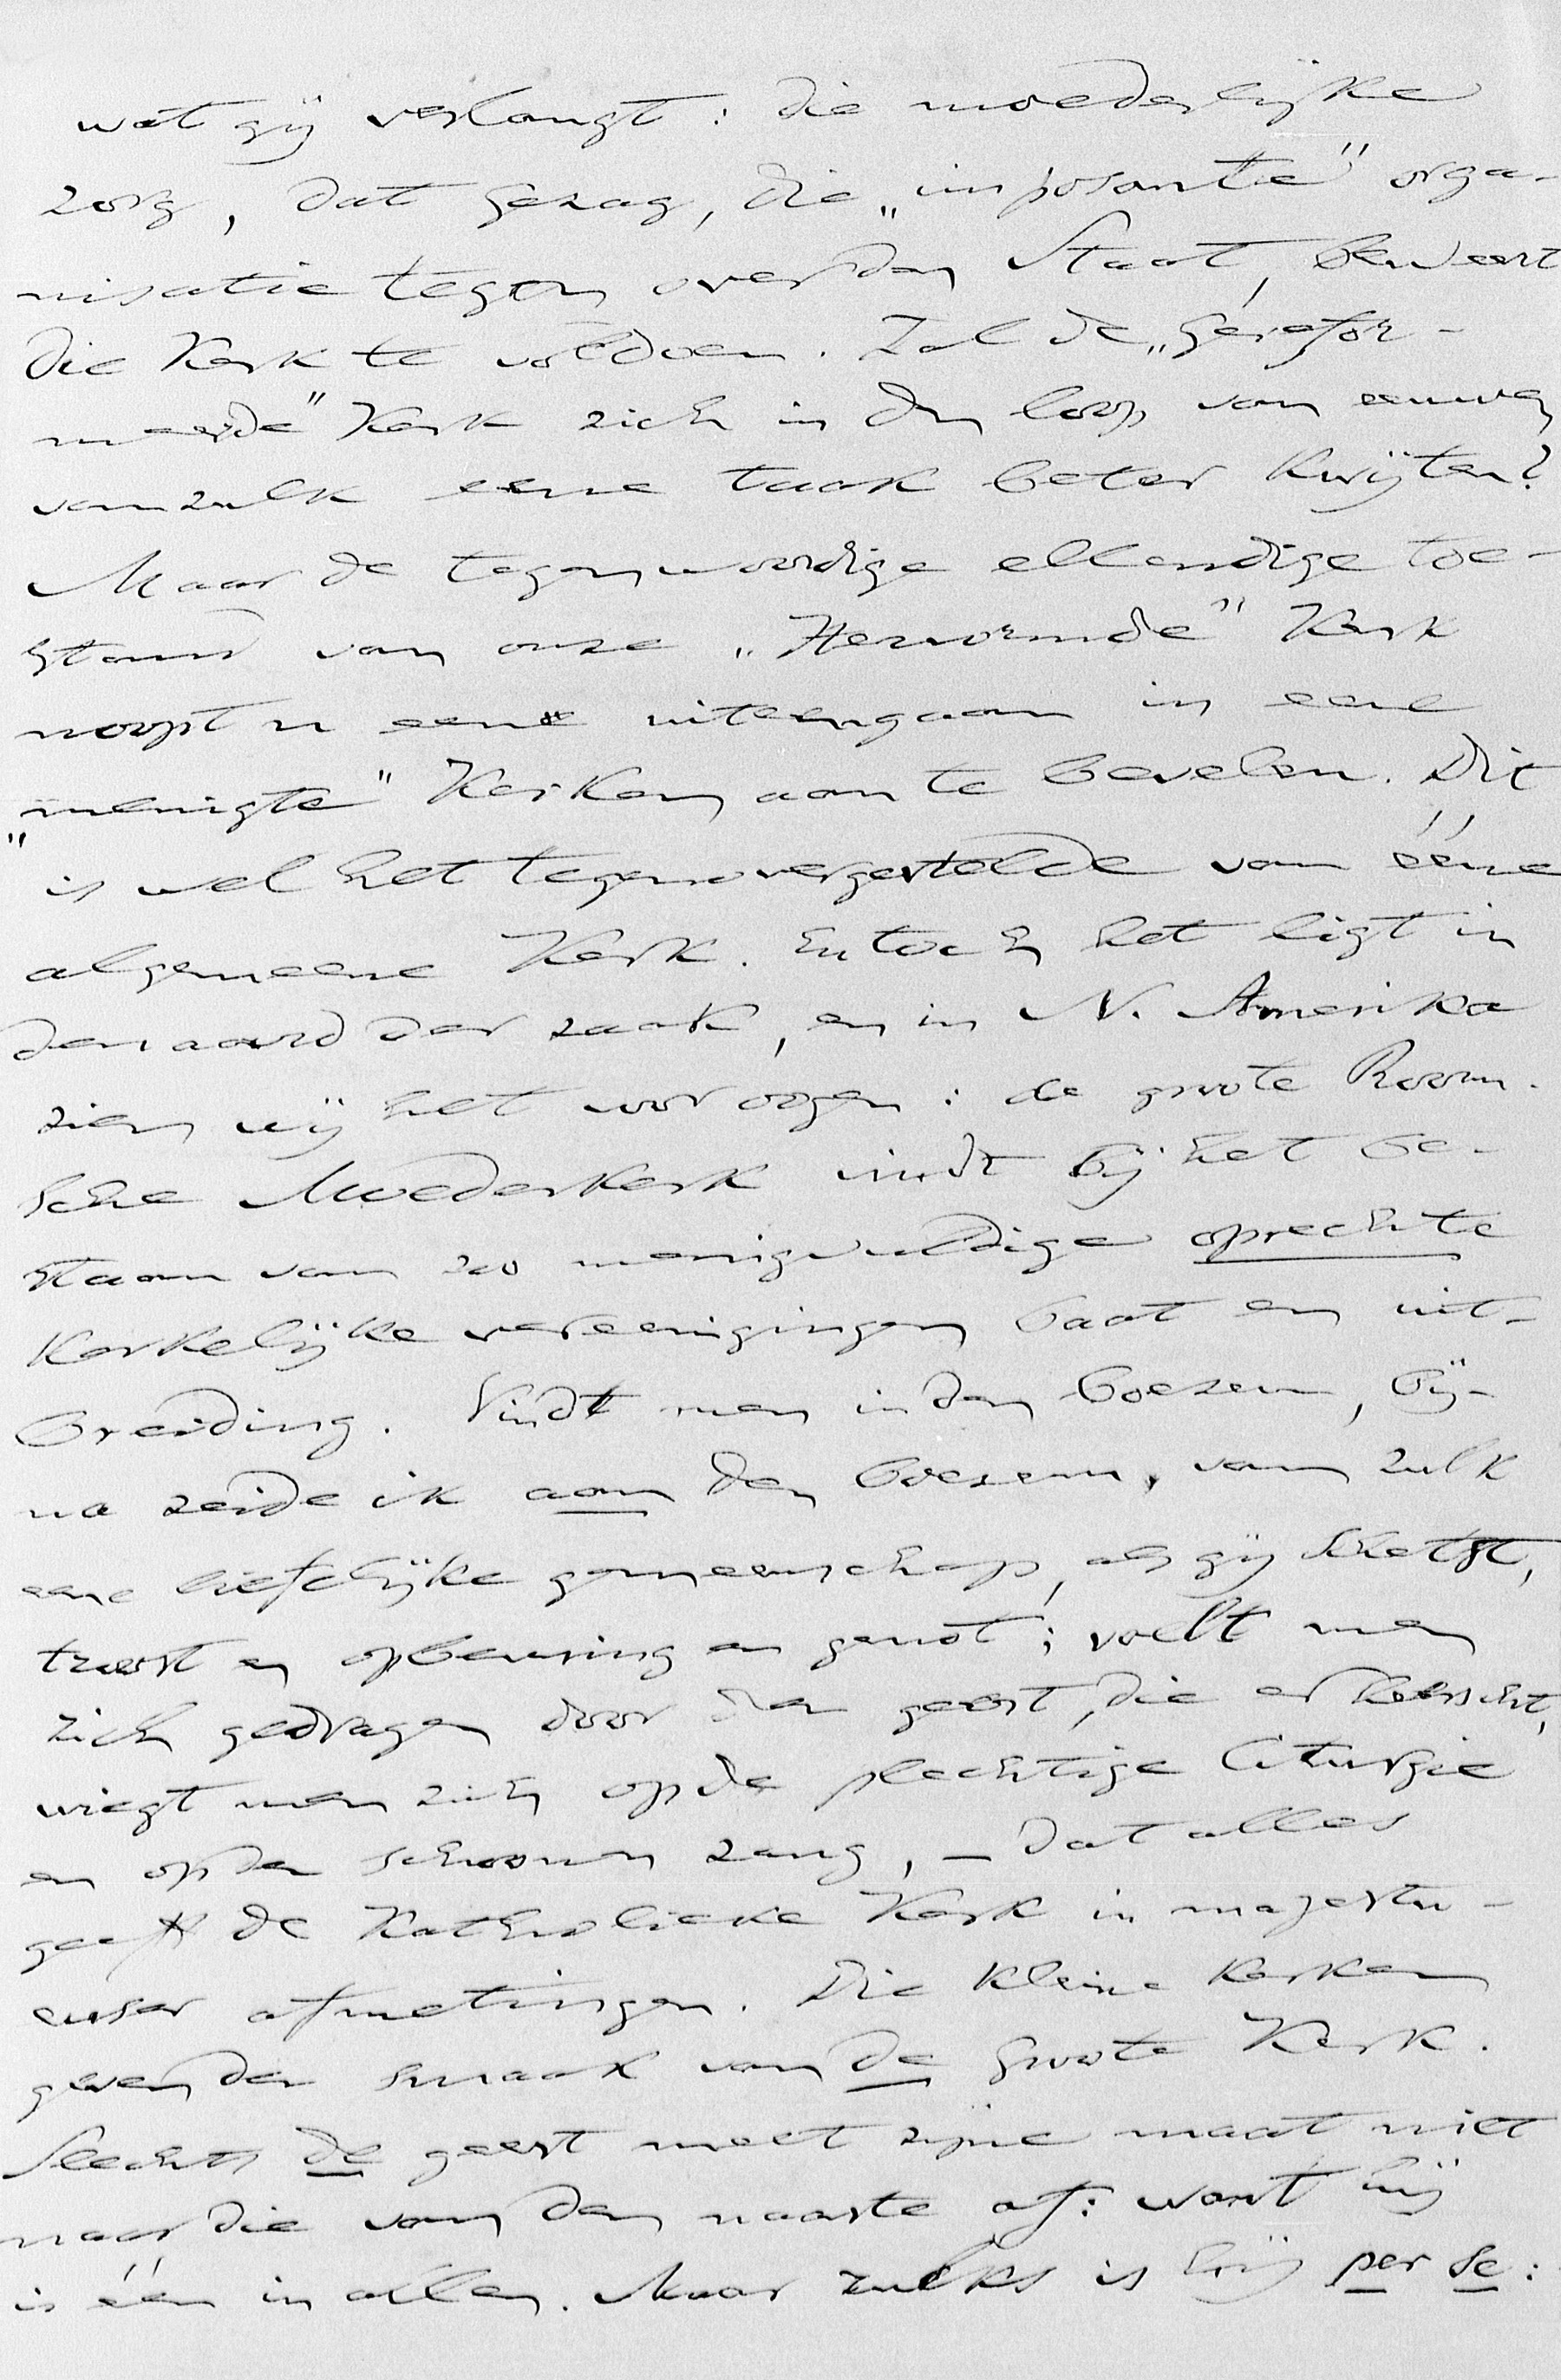 wat gij verlangt: die moederlijke
zorg, dat gezag, die „imposante" orga-
nisatie tegen over den Staat, beweert
die Kerk te voldoen. Zal de „Gerefor-
meerde" Kerk zich in den loop van eeuwen
van zulk eene taak beter kwijten?
Maar de tegenwoordige ellendige toe-
stand van onze „Hervormde" Kerk
noopt u eene uiteengaan in eene
„menigte" Kerken aan te bevelen. Dit
is wel het tegenovergestelde van ééne
algemeene Kerk. En toch het ligt in
den aard der zaak, en in N. Amerika
zien wij het voor oogen: de groote Room-
sche Moederkerk vindt bij het be-
staan van zoo menigvuldige oprechte
Kerkelijke vereenigingen baat en uit-
breiding. Vindt men in den boezem, bij-
na zeide ik aan den boezem, van zulk
eene liefelijke gemeenschap, als gij schetst,
troost en opbeuring en genot; voelt men
zich gedragen door den geest, die er heerscht,
wiegt men zich op de plechtige liturgie
en op den schoonen zang, – dat alles
geeft de Katholieke Kerk in majestu-
euser afmetingen. Die kleine Kerken
geven den smaak van de groote Kerk.
Slechts de geest meet zijne maat niet
naar die van den naaste af: want hij
is één in allen. Maar zulks is hij per se: